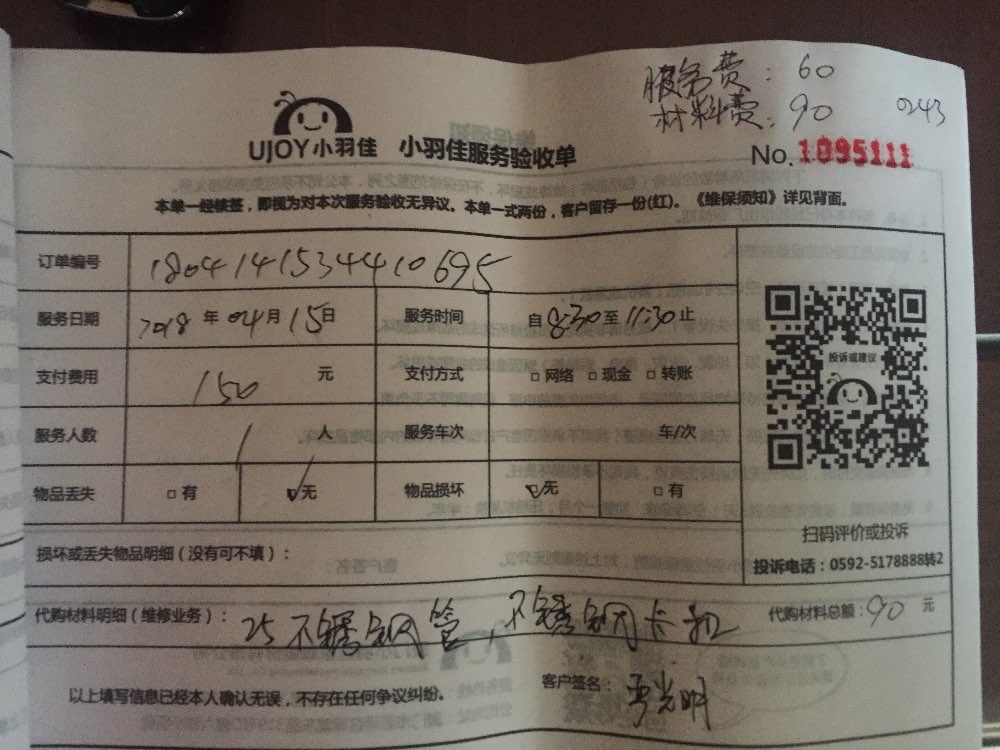 服务费：60
材料费：90 0243
UJOY小羽佳 小羽佳服务验收单
No.1095111
本单一经核签，即视为对本次服务验收无异议。本单一式两份，客户留存一份(红)。《维保须知》详见背面。
订单编号 1804141534410695
服务日期 2018年04月15日 服务时间 自8:30至11:30止
支付费用 150元 支付方式 □网络 □现金 □转账
投诉或建议
服务人数 1人 服务车次 车/次
物品丢失 □有 ☑无 物品损坏 ☑无 □有
扫码评价或投诉
损坏或丢失物品明细（没有可不填）：
投诉电话：0592-5178888转2
代购材料明细（维修业务）：25不锈钢管，不锈钢卡扣 代购材料总额：90元
以上填写信息已经本人确认无误，不存在任何争议纠纷。 客户签名：光明